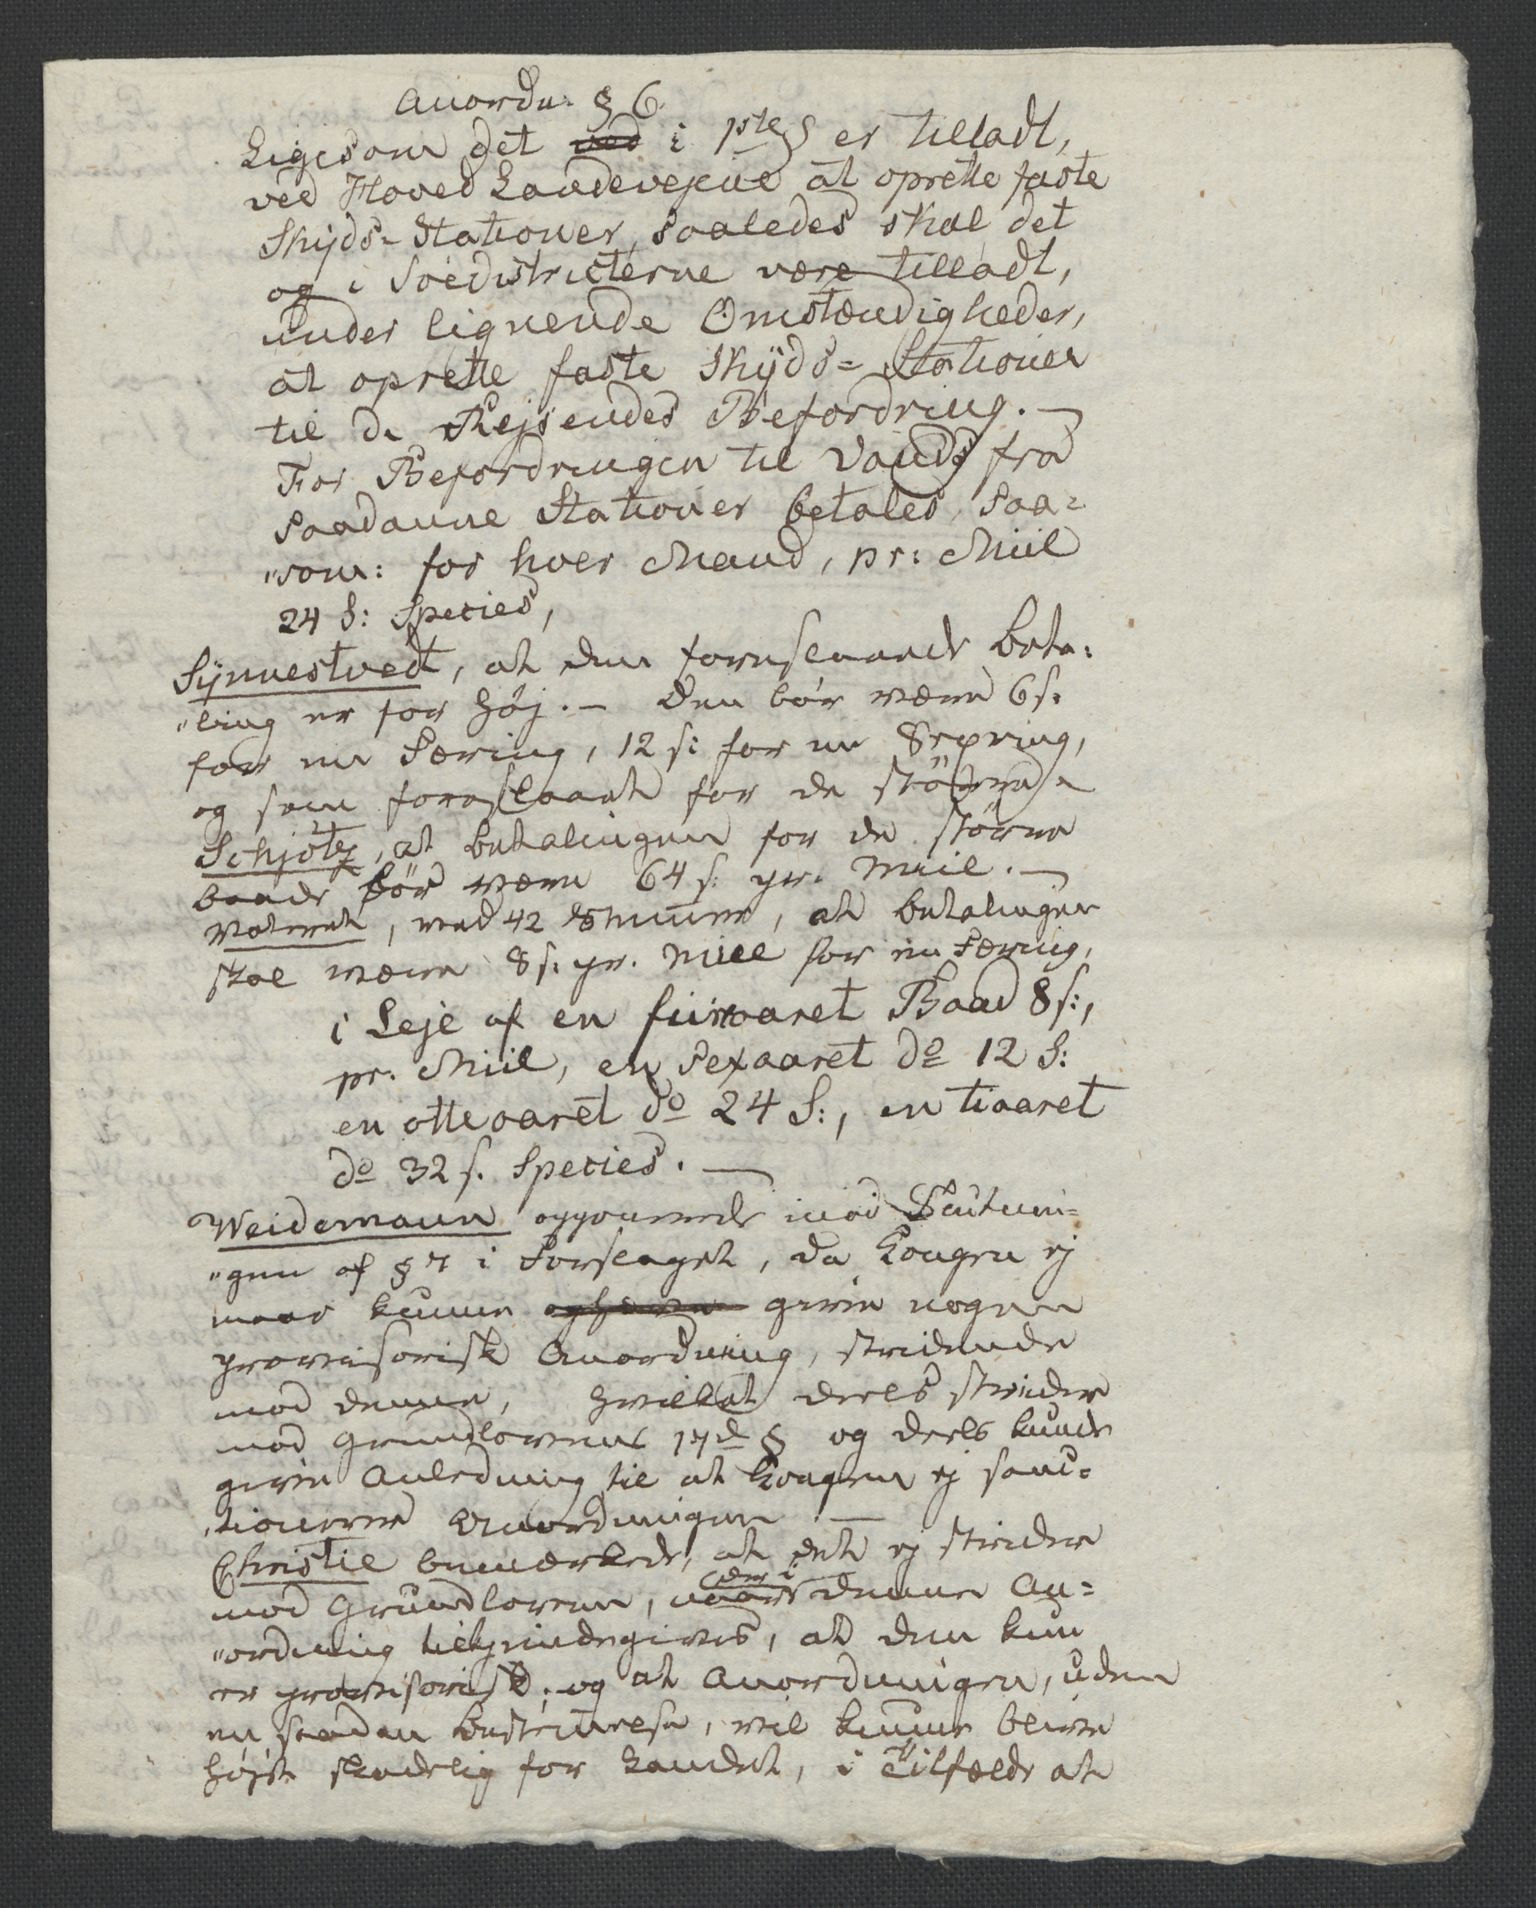 Anordn: § 6.
Ligesom det ved i 1ste § er tilladt,
ved Hoved Landevejene at oprette faste
Skyds- Stationer, saaledes skal det
og i Søedistricterne være tilladt,
under lignende Omstændigheder,
at oprette faste Skyds= Stationer
til de Rejsendes Befordring. —
For Befordringen til Vands fra
saadanne Stationer betales, saa=
"som: for hver Mand, pr: Miil
24 s: Species,
Synnestvedt, at den foreslaaede beta=
"ling er for høj. — Den bør være 6 s:
for en Færing, 12 s: for en Sexring,
og som foreslaaet for de større
Schjøtz, at betalingen for de større
baade bør være 64 s: pr. Miil. —
Votert, med 42 Stemmer, at betalingen
skal være 8 s. pr. Miil for en Færing,
i Leje af en fiiraaret Baad 8 s:,
pr. Miil, en sexaaret do 12 s:
en otteaaret do 24 s:, en tiaaret
do 32 s. Species. —
Weidemann opponerede mod Slutnin=
"gen af § 7 i Forslaget, da Kongen ej
maae kunne ophæve give nogen
provisorisk Anordning, stridende
mod denne, hvilket deels strider
mod Grundlovens 17de § og deels kunde
give Anledning til at Kongen ej sanc=
"tionerer Anordningen. —
Christie bemærkede, at det ej strider
mod Grundloven, naar der i denne An=
"ordning tilkjendegives, at den kun
er provisorisk; og at Anordningen, uden
en saadan bestemmelse, vil kunne blive
højst skadelig for Landet, i Tilfælde at